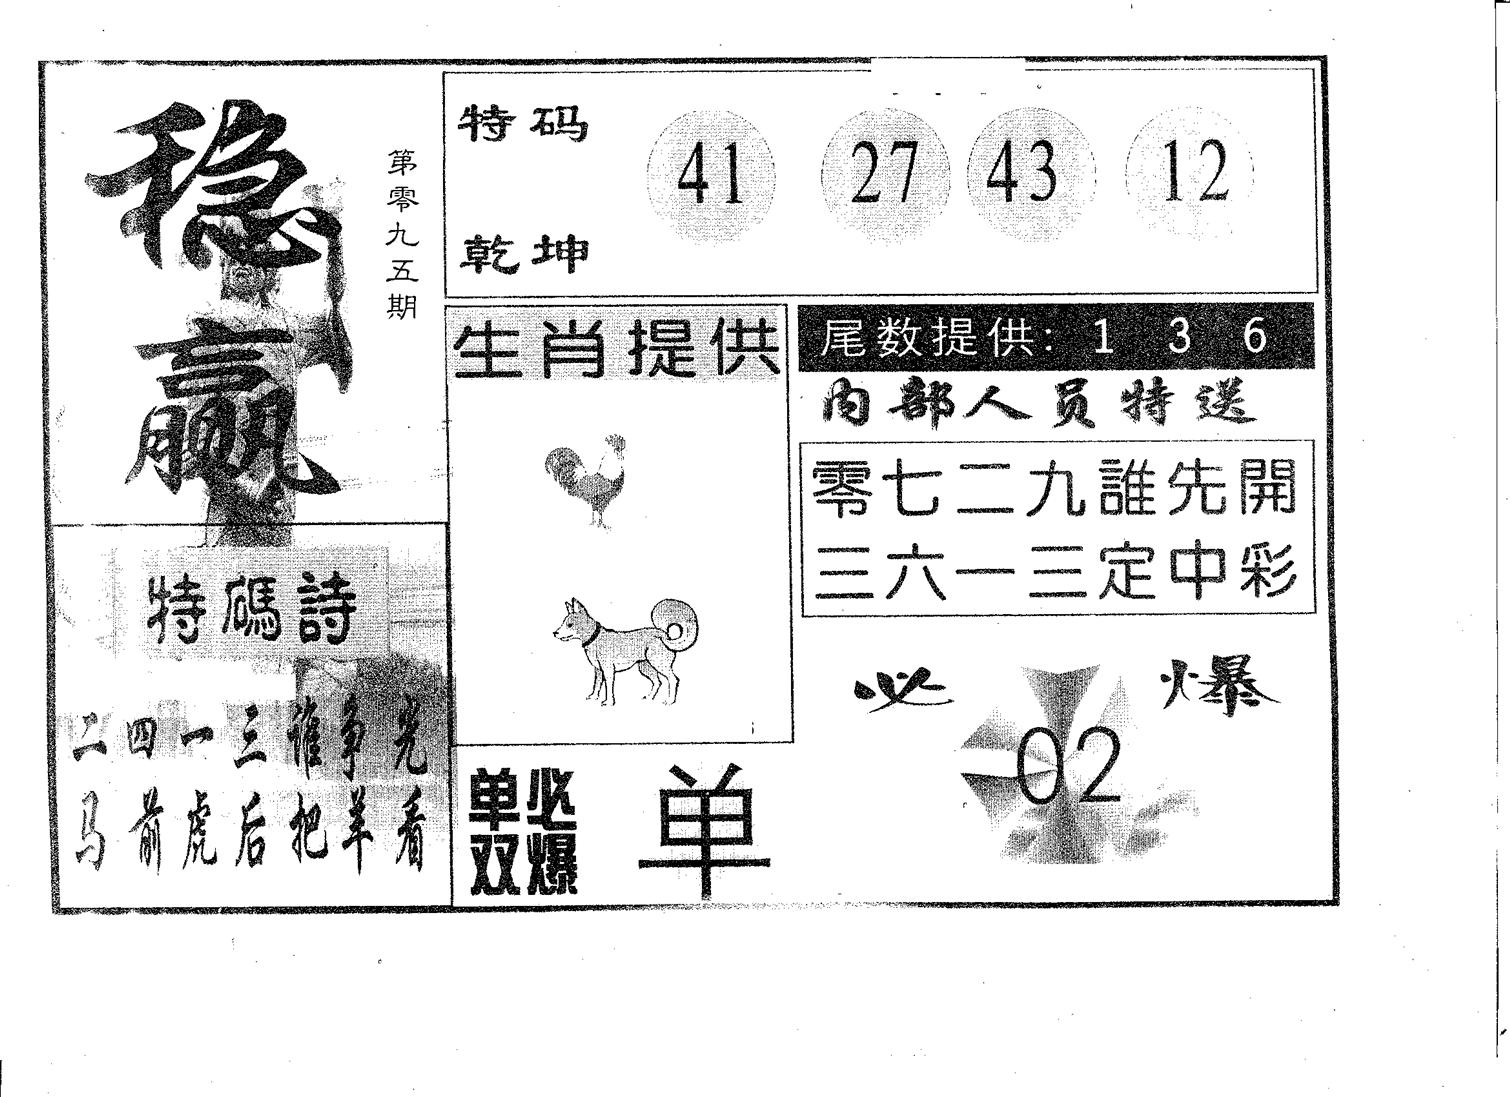 稳赢
第零九五期
特码
乾坤
41 27 43 12
生肖提供
尾数提供：1 3 6
内部人员特送
零七二九誰先開
三六一三定中彩
特碼詩
二四一三谁争先
马前虎后把羊看
必爆
02
单双
必爆
单